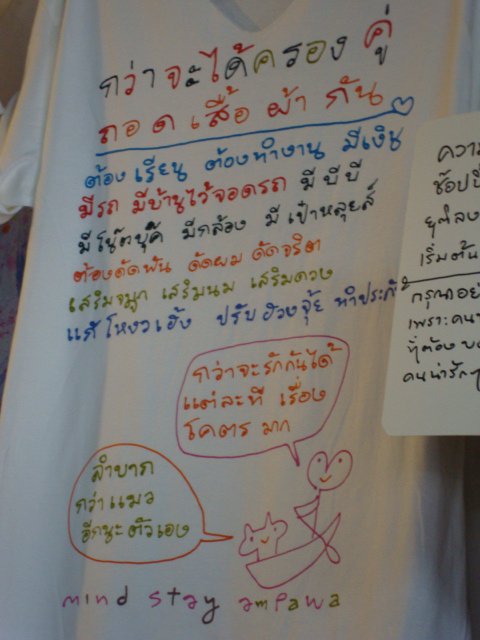 กว่าจะได้ครองคู่
ถอดเสื้อผ้ากัน
ต้องเรียน ต้องทำงาน มีเงิน
มีรถ มีบ้านไว้จอดรถ มีบีบี
มีโน๊ตบุ๊ค มีกล้อง มีเป๋าหลุยส์
ต้องดัดฟัน ดัดผม ดัดจริต
เสริมจมูก เสริมนม เสริมดวง
แก้โหงวเฮ้ง ปรับฮวงจุ้ย ทำประกัน
กว่าจะรักกันได้
แต่ละที เรื่อง
โคตร มาก
ลำบาก
กว่าแมว
อีกนะตัวเอง
mind stay ampawa
ความ
ช๊อปปิ้
ยุติลง
เริ่มต้น
กรุณาอย่
เพราะคน
ที่ต้อง
คนน่ารักๆ